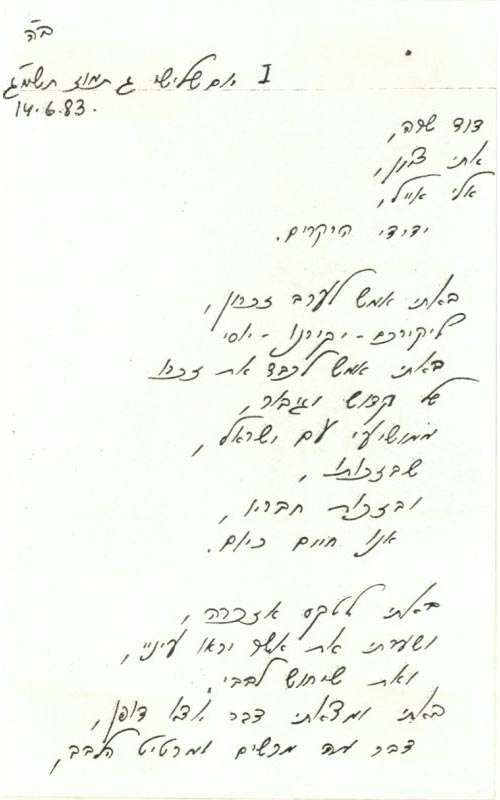 ב"ה
I יום שלישי ג תמוז תשמ"ג
14.6.83.
דוד שרה,
אתי
אלי אייל,
ידידי היקרים.
באתי אמש לערב זכרון,
ליקירכם - יקירנו - יוסי
באתי אמש לכבד את זכרו
של קדוש וגיבור,
ממושיעי עם ישראל,
שבזכותו,
ובזכות חבריו,
אנו חיים כיום.
באתי לטקס אזכרה,
ושערתי את אשר יראו עיניי,
ואת שיחוש לבבי.
באתי ומצאתי דבר יוצא דופן,
דבר מה מרשים ומרטיט הלבב,